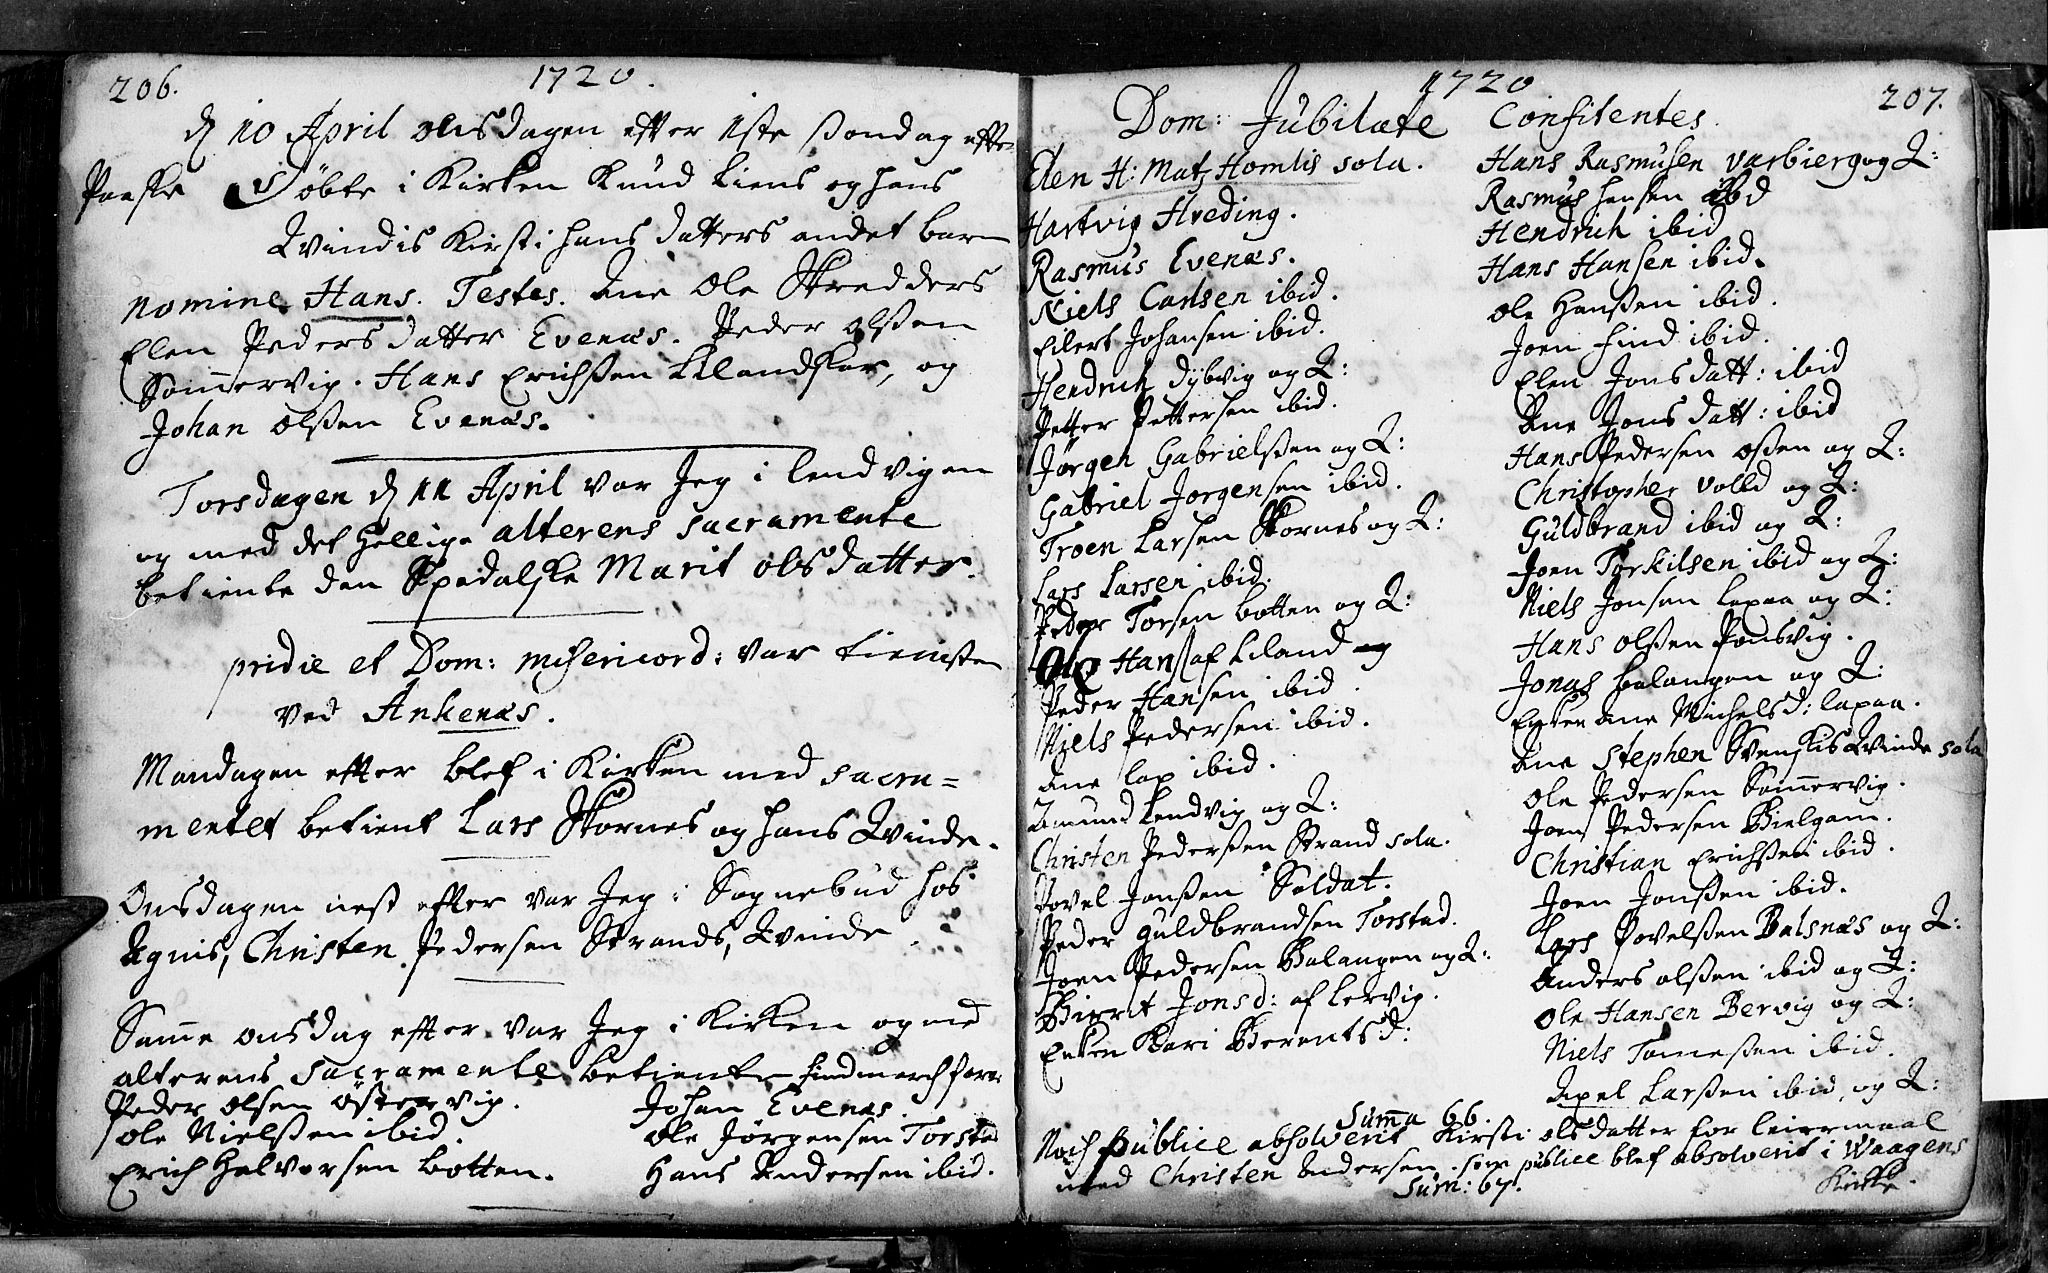 206.
1720.
d 10 April onsdagen effter 1ste Søndag effter
Paaske Døbte i Kirken Knud Liens og hans
Qvindis Kirsti Hans datters andet barn
nomine Hans. Testes. Ane Ole Skredders
Elen Peders datter Evenæs. Peder Olssen
Sommervig. Hans Erichssen Lilandskar, og
Johan Olssen Evenæs.
Torsdagen d 11 April var Jeg i Lendvigen
og med det hellige alterens sacramente
betiente den Spedalske Marit Olsdatter.
pridie et Dom: misericord: var tienisten
ved Ankenæs.
Mandagen effter blef i Kirken med sacra=
mentet betient Lars Skornes og hans Qvinde.
Onsdagen nest effter var Jeg i Sognebud hos
Agnis, Christen Pedersen Strands, Qvinde.
Samme onsdag effter var Jeg i Kirken og med
alterens sacramente betiente findmarch farer
Peder Olsen Østervig.
Johan Evenæs.
Ole Nielssen ibid.
Ole Jørgensen Torstad
Erich Halvorsen botten.
Hans Andersen ibid.
1720
207.
Dom: Jubilate Confitentes.
Elen H: Matz Homlis sola.
Hartvig Hveding.
Rasmus Evenæs.
Niels Carlsen ibid.
Eilert Johansen ibid.
Hendrich Dybvig og Q:
Petter Pettersen ibid.
Jørgen Gabrielssen og Q:
Gabriel Jørgensen ibid.
Troen Larsen Skornes og Q:
Lars Larsen ibid.
Peder Torsen botten og Q:
Ole Hanss af Liland og
Peder Hansen ibid.
Niels Pedersen ibid.
Ane lap ibid.
Amund Lendvig og Q:
Christen Pederssen Strand sola.
Povel Jonssen Soldat.
Peder Guldbrandsen Torstad.
Joen Pedersen Balangen og Q:
Birrit Jonsd: af Lervig.
Enken Kari Berentsd:
Hans Rasmusen Varbierg og Q:
Rasmus Hansen ibd
Hendrich ibid
Hans Hansen ibid.
Ole Hanssen ibid.
Joen find ibid.
Elen Jonsdatt: ibid
Ane Jonsdatt: ibid
Hans Pedersen Osen og Q:
Christopher Volld og Q:
Guldbrand ibid og Q:
Joen Torkilsen ibid og Q:
Niels Jonsen Lapaa og Q:
Hans Olssen Ponsvig.
Jonas balangen og Q:
Enken Ane Michelsd: Lapaa.
Ane Stephen Svenskis Qvinde sola
Ole Pedersen Sommervig.
Joen Pedersen Bielgam.
Christian Erichssen ibid.
Joen Jonssen ibid.
Lars Povelssen Balsnæs og Q:
Anders Olssen ibid og Q:
Ole Hansen Bervig og Q:
Niels Tomessen ibid.
Axel Larssen ibid, og Q:
Summa 66.
Noch publice absolverit Kirsti Olsdatter for leiermaal
med Christen Andersen. som publice blef absolverit i Waagens
Kirke.
Sum: 67.